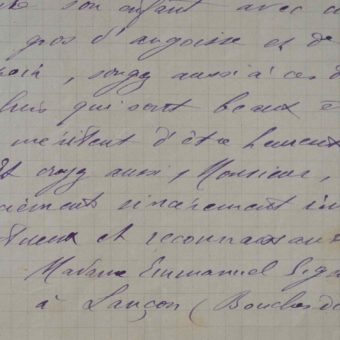 son enfant avec
gros d'angoisse et de
, songez aussi à ces
qui sont beaux
méritent d'être
Et croyez aussi, Monsieur,
sincèrement
et reconnaissan
Madame Emmanuel Sign
à Lançon (Bouches d